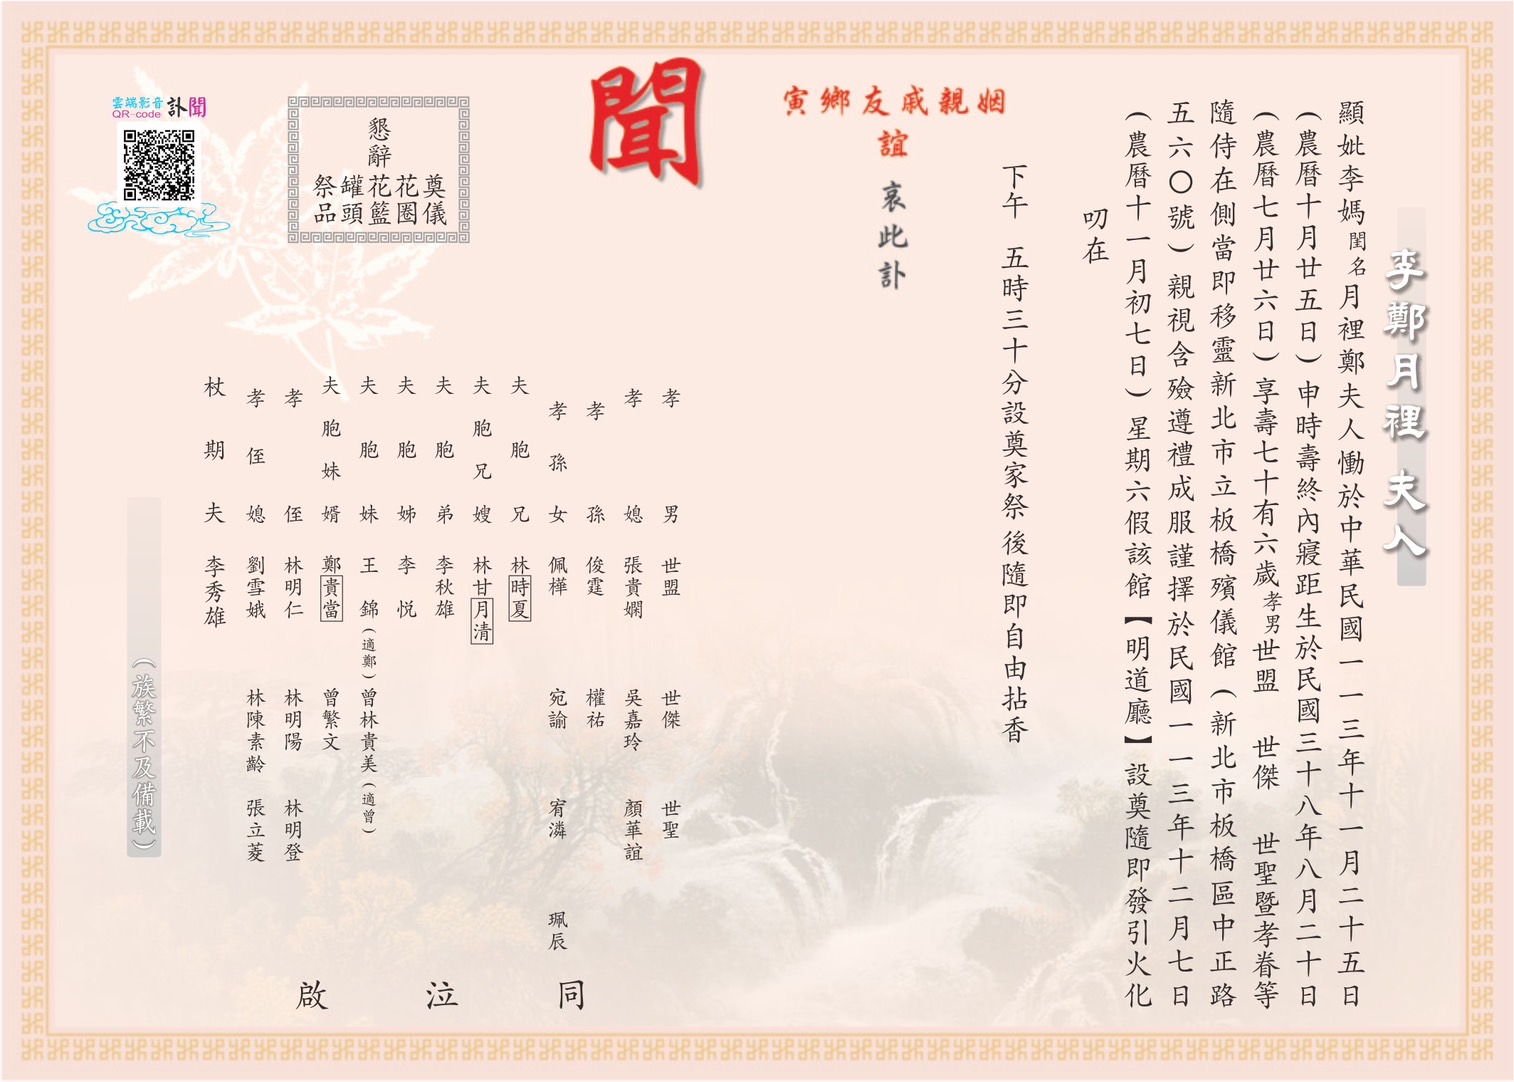 李鄭月裡 夫人
顯妣李媽閨名月裡鄭夫人慟於中華民國一一三年十一月二十五日
（農曆十月廿五日）申時壽終內寢距生於民國三十八年八月二十日
（農曆七月廿六日）享壽七十有六歲孝男世盟 世傑 世聖暨孝眷等
隨侍在側當即移靈新北市立板橋殯儀館（新北市板橋區中正路
五六〇號）親視含殮遵禮成服謹擇於民國一一三年十二月七日
（農曆十一月初七日）星期六假該館【明道廳】設奠隨即發引火化
叨在
下午 五時三十分設奠家祭 後隨即自由拈香
姻親戚友鄉寅
誼
哀此訃
聞
孝男 世盟 世傑 世聖
孝媳 張貴嫻 吳嘉玲 顏華誼
孝孫 俊霆 權祐
孝孫女 佩樺 宛諭 宥潾 珮辰
夫胞兄 林時夏
夫胞兄嫂 林甘月清
夫胞弟 李秋雄
夫胞姊 李悦
夫胞妹 王錦（適鄭）曾林貴美（適曾）
夫胞妹婿 鄭貴當 曾繁文
孝侄 林明仁 林明陽 林明登
孝侄媳 劉雪娥 林陳素齡 張立菱
杖期夫 李秀雄
同泣啟
（族繁不及備載）
懇辭
奠儀
花圈
花籃
罐頭
祭品
雲端影音
QR-code
訃聞